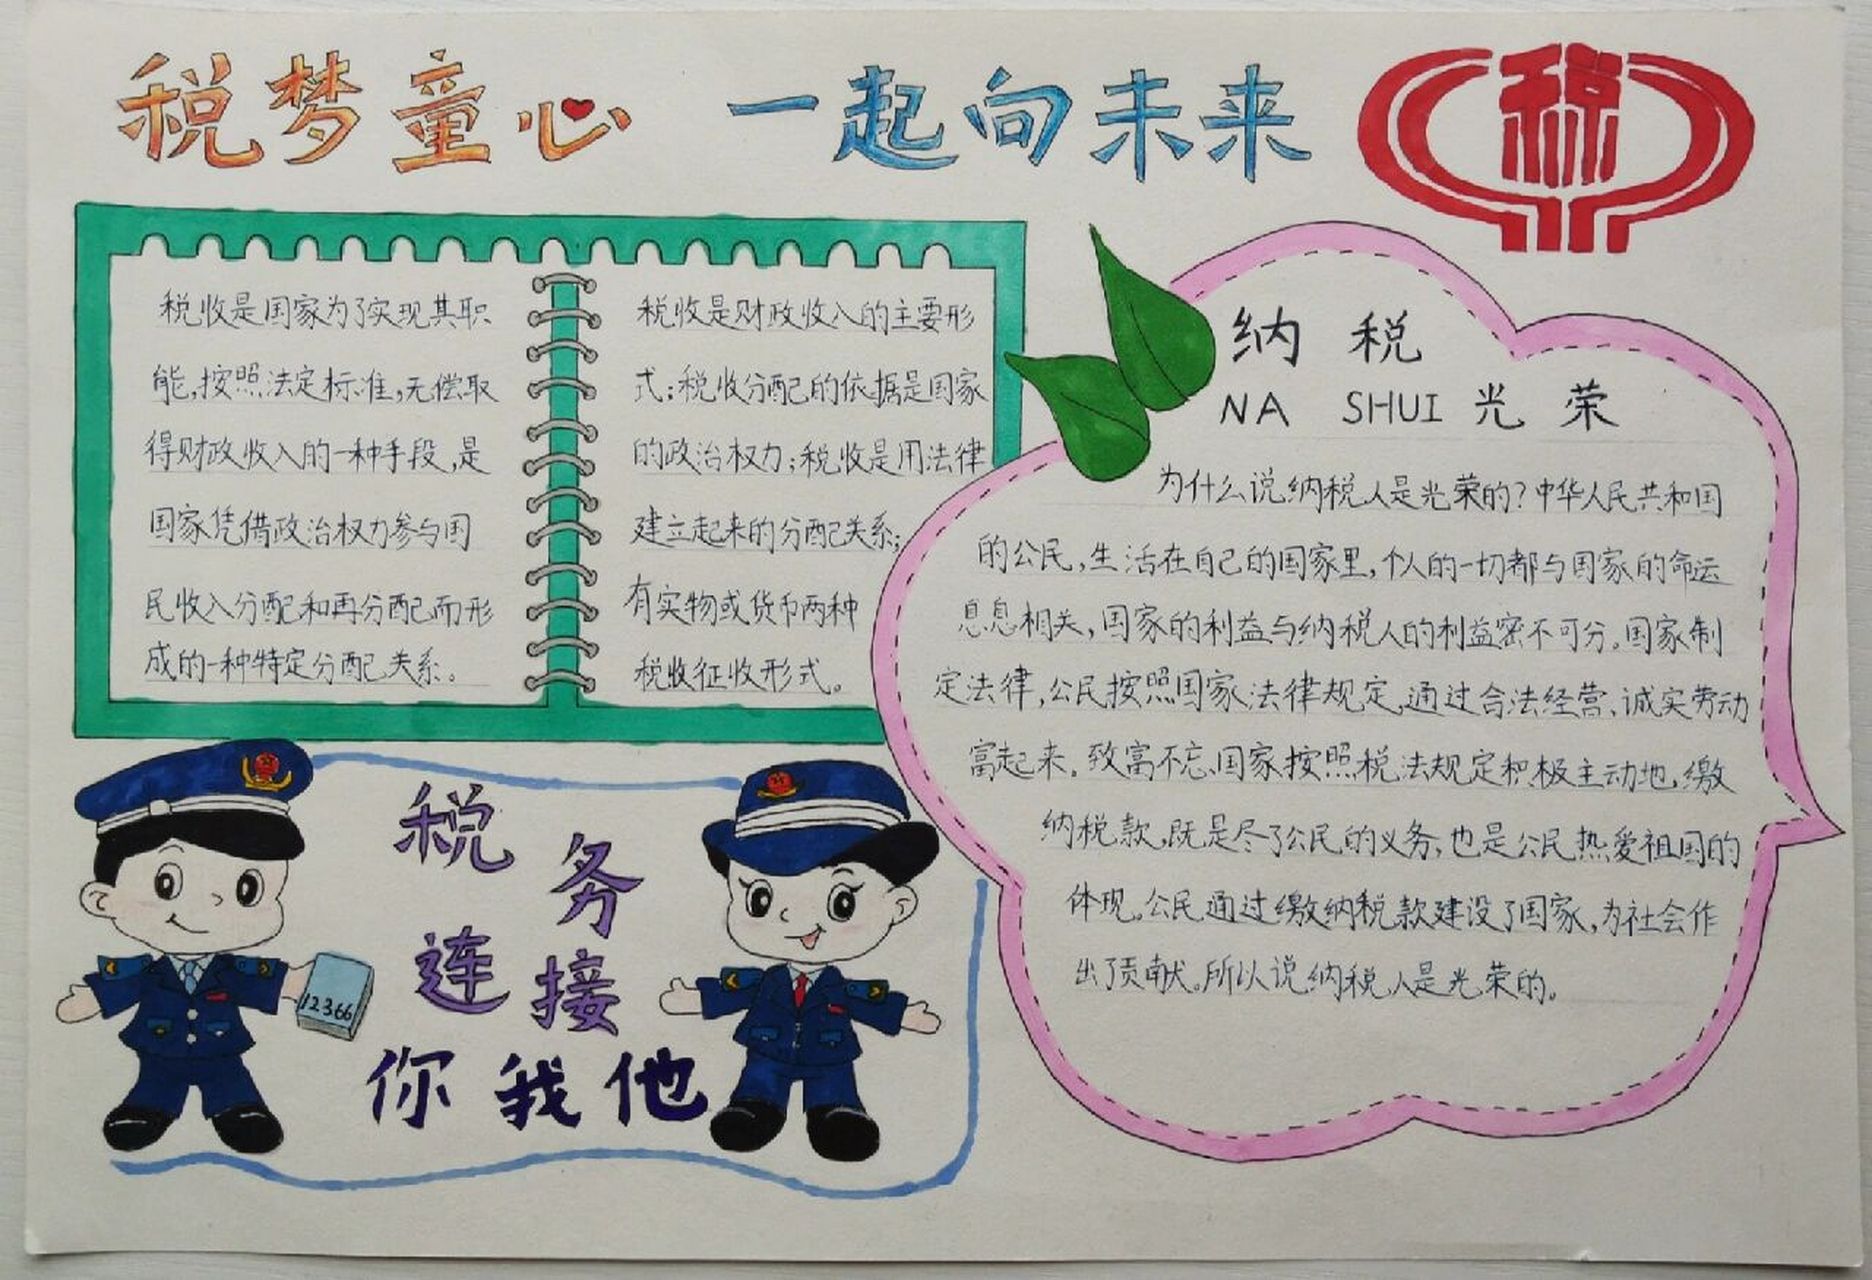 税梦童心 一起向未来
税
税收是国家为了实现其职
能,按照法定标准,无偿取
得财政收入的一种手段,是
国家凭借政治权力参与国
民收入分配和再分配而形
成的一种特定分配关系。
税收是财政收入的主要形
式;税收分配的依据是国家
的政治权力;税收是用法律
建立起来的分配关系;
有实物或货币两种
税收征收形式。
纳 税
NA SHUI 光 荣
为什么说纳税人是光荣的?中华人民共和国
的公民,生活在自己的国家里,个人的一切都与国家的命运
息息相关,国家的利益与纳税人的利益密不可分。国家制
定法律,公民按照国家法律规定,通过合法经营、诚实劳动
富起来。致富不忘国家按照税法规定积极主动地,缴
纳税款,既是尽了公民的义务,也是公民热爱祖国的
体现。公民通过缴纳税款建设了国家,为社会作
出了贡献。所以说纳税人是光荣的。
税务
连接
你我他
12366